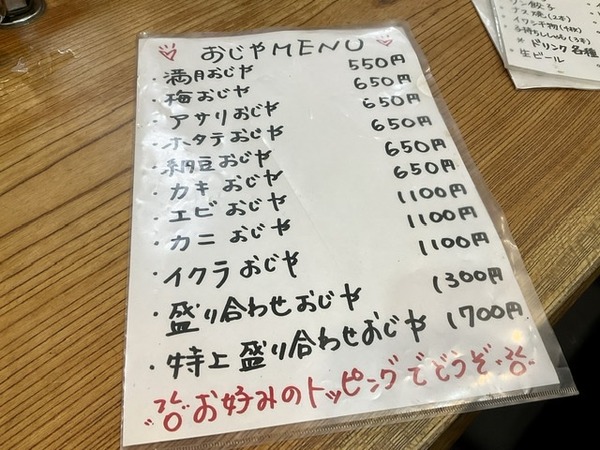 おじやMENU
・満月おじや 550円
・梅おじや 650円
・アサリおじや 650円
・ホタテおじや 650円
・納豆おじや 650円
・カキおじや 650円
・エビおじや 1100円
・カニおじや 1100円
・イクラおじや 1100円
・盛り合わせおじや 1300円
・特上盛り合わせおじや 1700円
お好みのトッピングでどうぞ
餃子
ナス焼(2本)
イワシ干物(1枚)
子持ちししゃも(3本)
※ドリンク各種
・生ビール